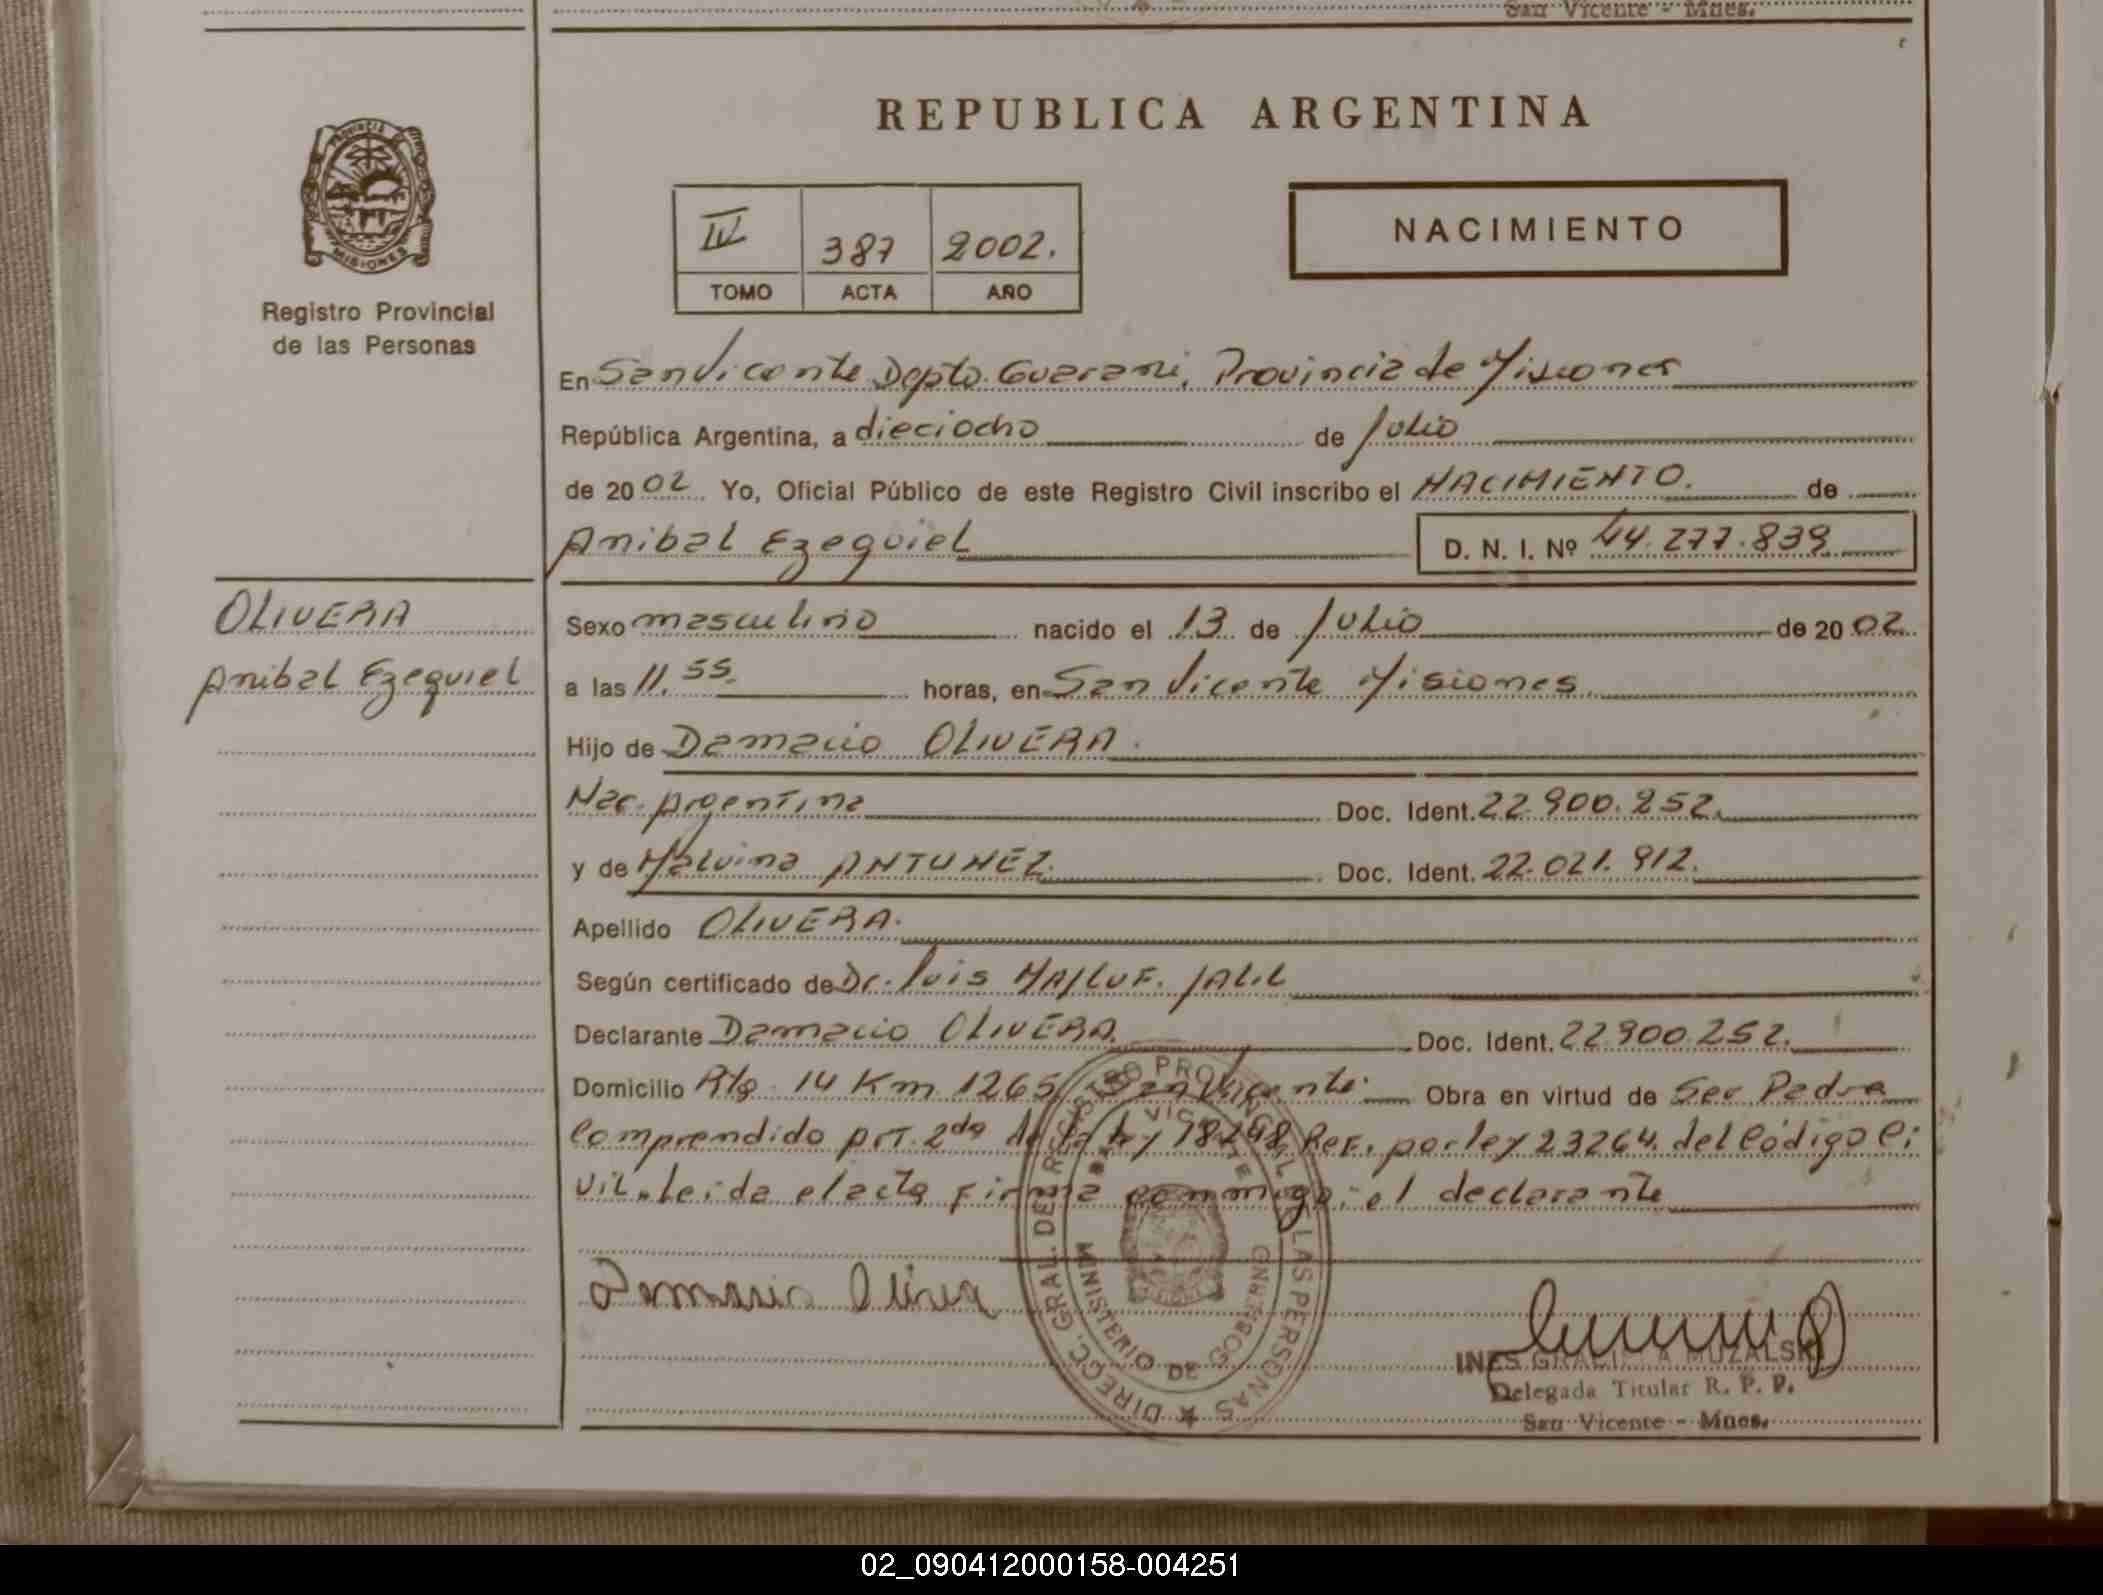 San Vicente - Mnes.
REPUBLICA ARGENTINA
PROVINCIA
MISIONES
Registro Provincial
de las Personas
IV 387 2002.
TOMO ACTA AÑO
NACIMIENTO
En San Vicente Depto. Guarani, Provincia de Misiones
República Argentina, a dieciocho de Julio
de 2002 Yo, Oficial Público de este Registro Civil inscribo el NACIMIENTO. de
Anibal Ezequiel D. N. I. Nº 44.277.839
OLIVERA
Anibal Ezequiel
Sexo masculino nacido el 13 de Julio de 2002
a las 11.55. horas, en San Vicente Misiones
Hijo de Damacio OLIVERA.
Nac. Argentina Doc. Ident. 22.900.252.
y de Malvina ANTUNEZ. Doc. Ident. 22.021.912.
Apellido OLIVERA.
Según certificado de Dr. Luis MAJLUF. JALIL
Declarante Damacio OLIVERA. Doc. Ident. 22.900.252.
Domicilio Rta 14 Km 1265 San Vicente. Obra en virtud de Ser Padre
Comprendido Art. 2do de la ley 18248 Ref. por ley 23264. del Código Ci
vil. Leida el acta Firma conmigo: el declarante
Damacio Olivera
DIRECC. GRAL. DEL REGISTRO PROVINCIAL DE LAS PERSONAS
VICENTE
MINISTERIO DE GOBIERNO
INES GRACIELA MUZALSKI
Delegada Titular R. P. P.
San Vicente - Mnes.
02_090412000158-004251